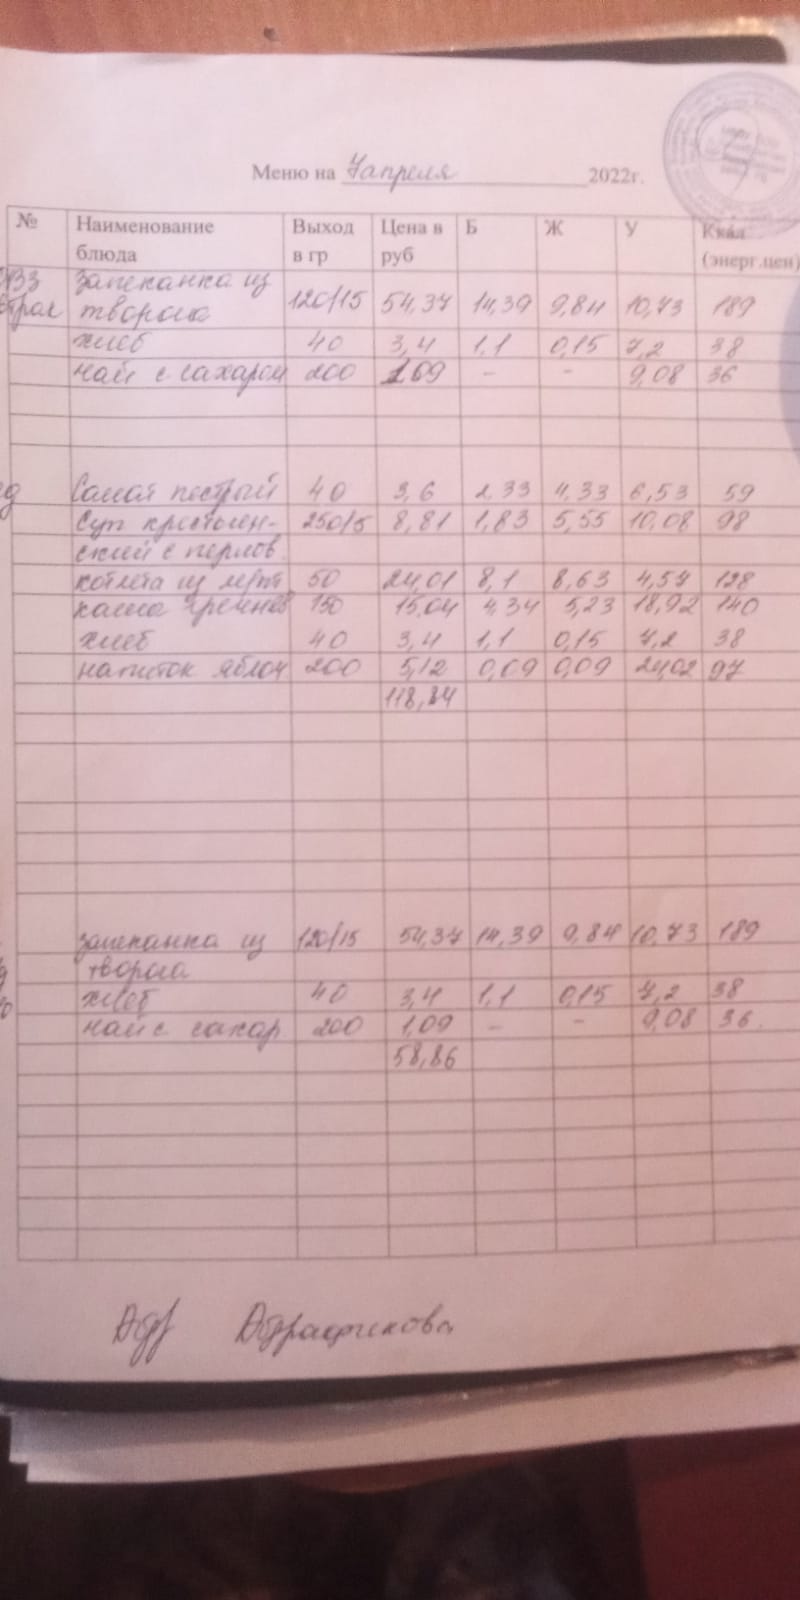 Меню на 7 апреля 2022г.
№ Наименование блюда Выход в гр Цена в руб Б Ж У Ккал (энерг.цен)
ОВЗ Запеканка из
творога 120/15 54,37 14,39 9,84 10,73 189
хлеб 40 3,4 1,1 0,15 7,2 38
чай с сахаром 200 1,09 - - 9,08 36
Салат пестрый 40 3,6 2,33 4,33 6,53 59
Суп крестьян- 250/5 8,81 1,83 5,55 10,08 98
ский с перлов.
котлета из 50 24,01 8,1 8,63 4,57 128
каша гречнев 150 15,04 4,34 5,23 18,92 140
хлеб 40 3,4 1,1 0,15 7,2 38
напиток яблоч 200 5,12 0,09 0,09 24,02 97
118,84
запеканка из 120/15 54,37 14,39 9,84 10,73 189
творога
хлеб 40 3,4 1,1 0,15 7,2 38
чай с сахар. 200 1,09 - - 9,08 36.
58,86